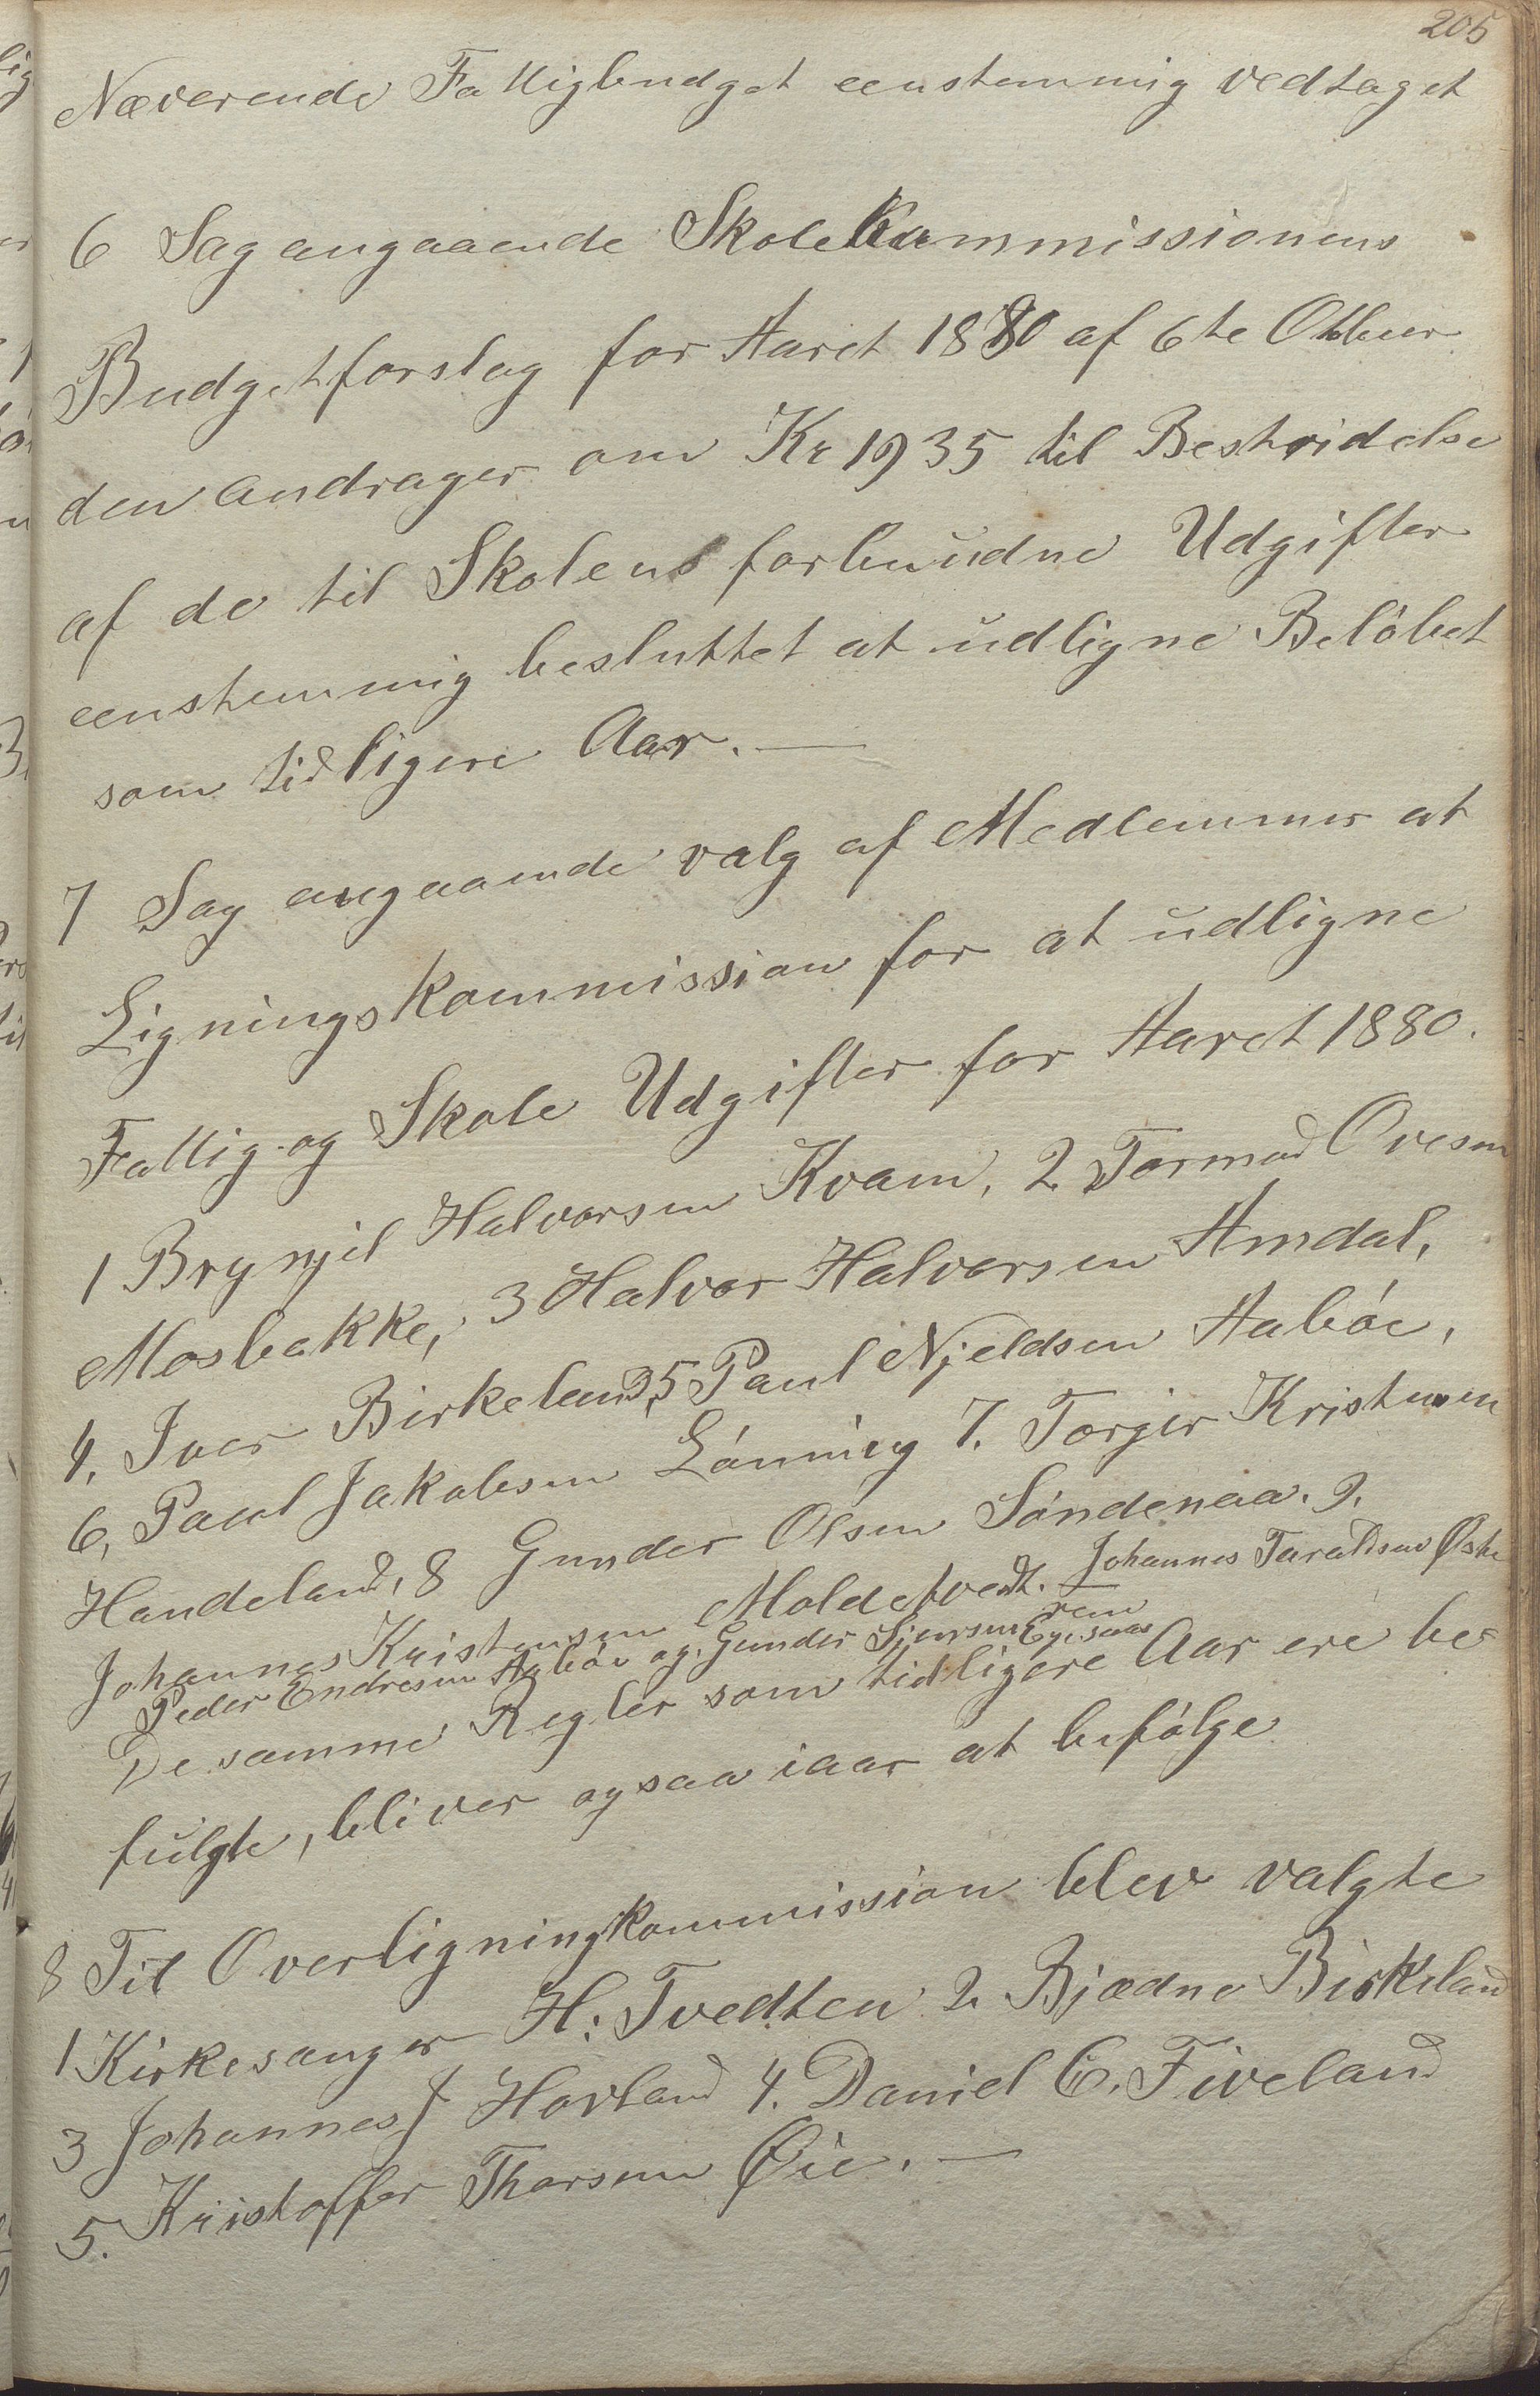 205
Næverende Fattigbudget eenstemmig vedtaget
6 Sag angaaende Skolekommissionens
Budgetforslag for Aaret 1880 af 6te Otbner
den andrager om Kr 1935 til Bestridelse
af de til Skolens forbundne Udgifter
eenstemmig besluttet at udligne Beløbet
som tidligere Aar. —
7 Sag angaaende valg af Medlemmer at
Ligningskommission for at udligne
Fattig og Skole Udgifter for Aaret 1880.
1 Brynjel Halvorsen Kvam, 2 Tormod Ovesen
Mosbakke, 3 Halvor Halvorsen Amdal,
4, Iver Birkeland, 5 Paul Njeldsen Aabøe,
6, Paul Jakobsen Lønning 7. Torger Kristensen
Handeland, 8 Gunder Olsen Søndenaa. 9.
Johannes Kristensen Moldetvedt. Johannes Taraldsen Østre
Peder Endresen Aabøe og Gunder Sjursen Egesaas
De samme Regler som tidligere Aar ere be
fulgte, bliver ogsaa iaar at befølge
8 Til Overligningkommission blev valgte
1 Kirkesanger H: Tvedten 2 Bjædne Birkeland
3 Johannes J Hovland 4. Daniel C. Fiveland
5. Kristoffer Thorsen Øie. —